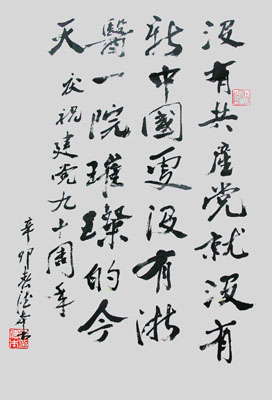 没有共产党就没有
新中國更没有浙
醫一院璀璨的今
天
庆祝建党九十周年
辛卯春德年书